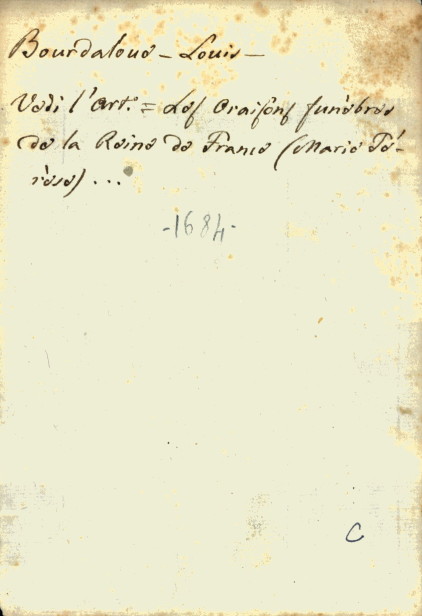 Bourdaloue - Louis -
Vedi l'Art. = Les Oraisons funèbres
de la Reine de France (Marie Té-
rèse) ...
-1684-
C